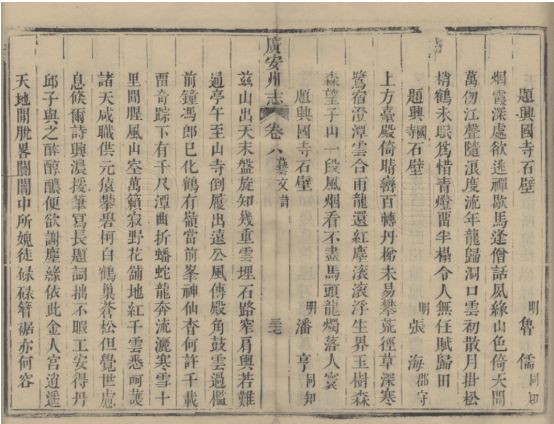 題興國寺石壁
明 魯儒 同知
烟霞深處欲逃禪歇馬逢僧話夙緣山色倚天開
萬仞江聲隨浪度流年龍歸洞口雲初散月掛松
梢鶴未眠為惜青燈留半榻令人無任賦歸田
題興國寺石壁
明 張海 郡守
上方臺殿倚晴巒百轉丹梯未易攀荒徑草深寒
鷺宿澄潭雲合雨龍還紅塵滾滾浮生界玉樹森
森望子山一段風烟看不盡馬頭龍燭落人寰
題興國寺石壁 明 潘亨 同知
廣安州志 卷八 藝文詩
茲山出天末盤旋知幾重雲埋石路窄肩輿若難
通亭午至山寺倒履出遠公風傳殿角鼓雲過檻
前鐘馮郎已化鶴有嶺當前峯神仙杳何許千載
留奇踪下有千尺潭曲折蟠蛇龍奔流灑寒雪十
里聞腥風山空萬籟寂野花鋪地紅千雲悉呵護
諸天咸職供元猿攀碧柯白鶴巢蒼松但覺世慮
息倏爾詩興濃援筆寫長題詞拙不暇工安得丹
邱子與之醉醇醲便欲謝塵緣依此金人宮逍遙
天地間脫畧闤闠中所媿徒碌碌簪裾亦何容